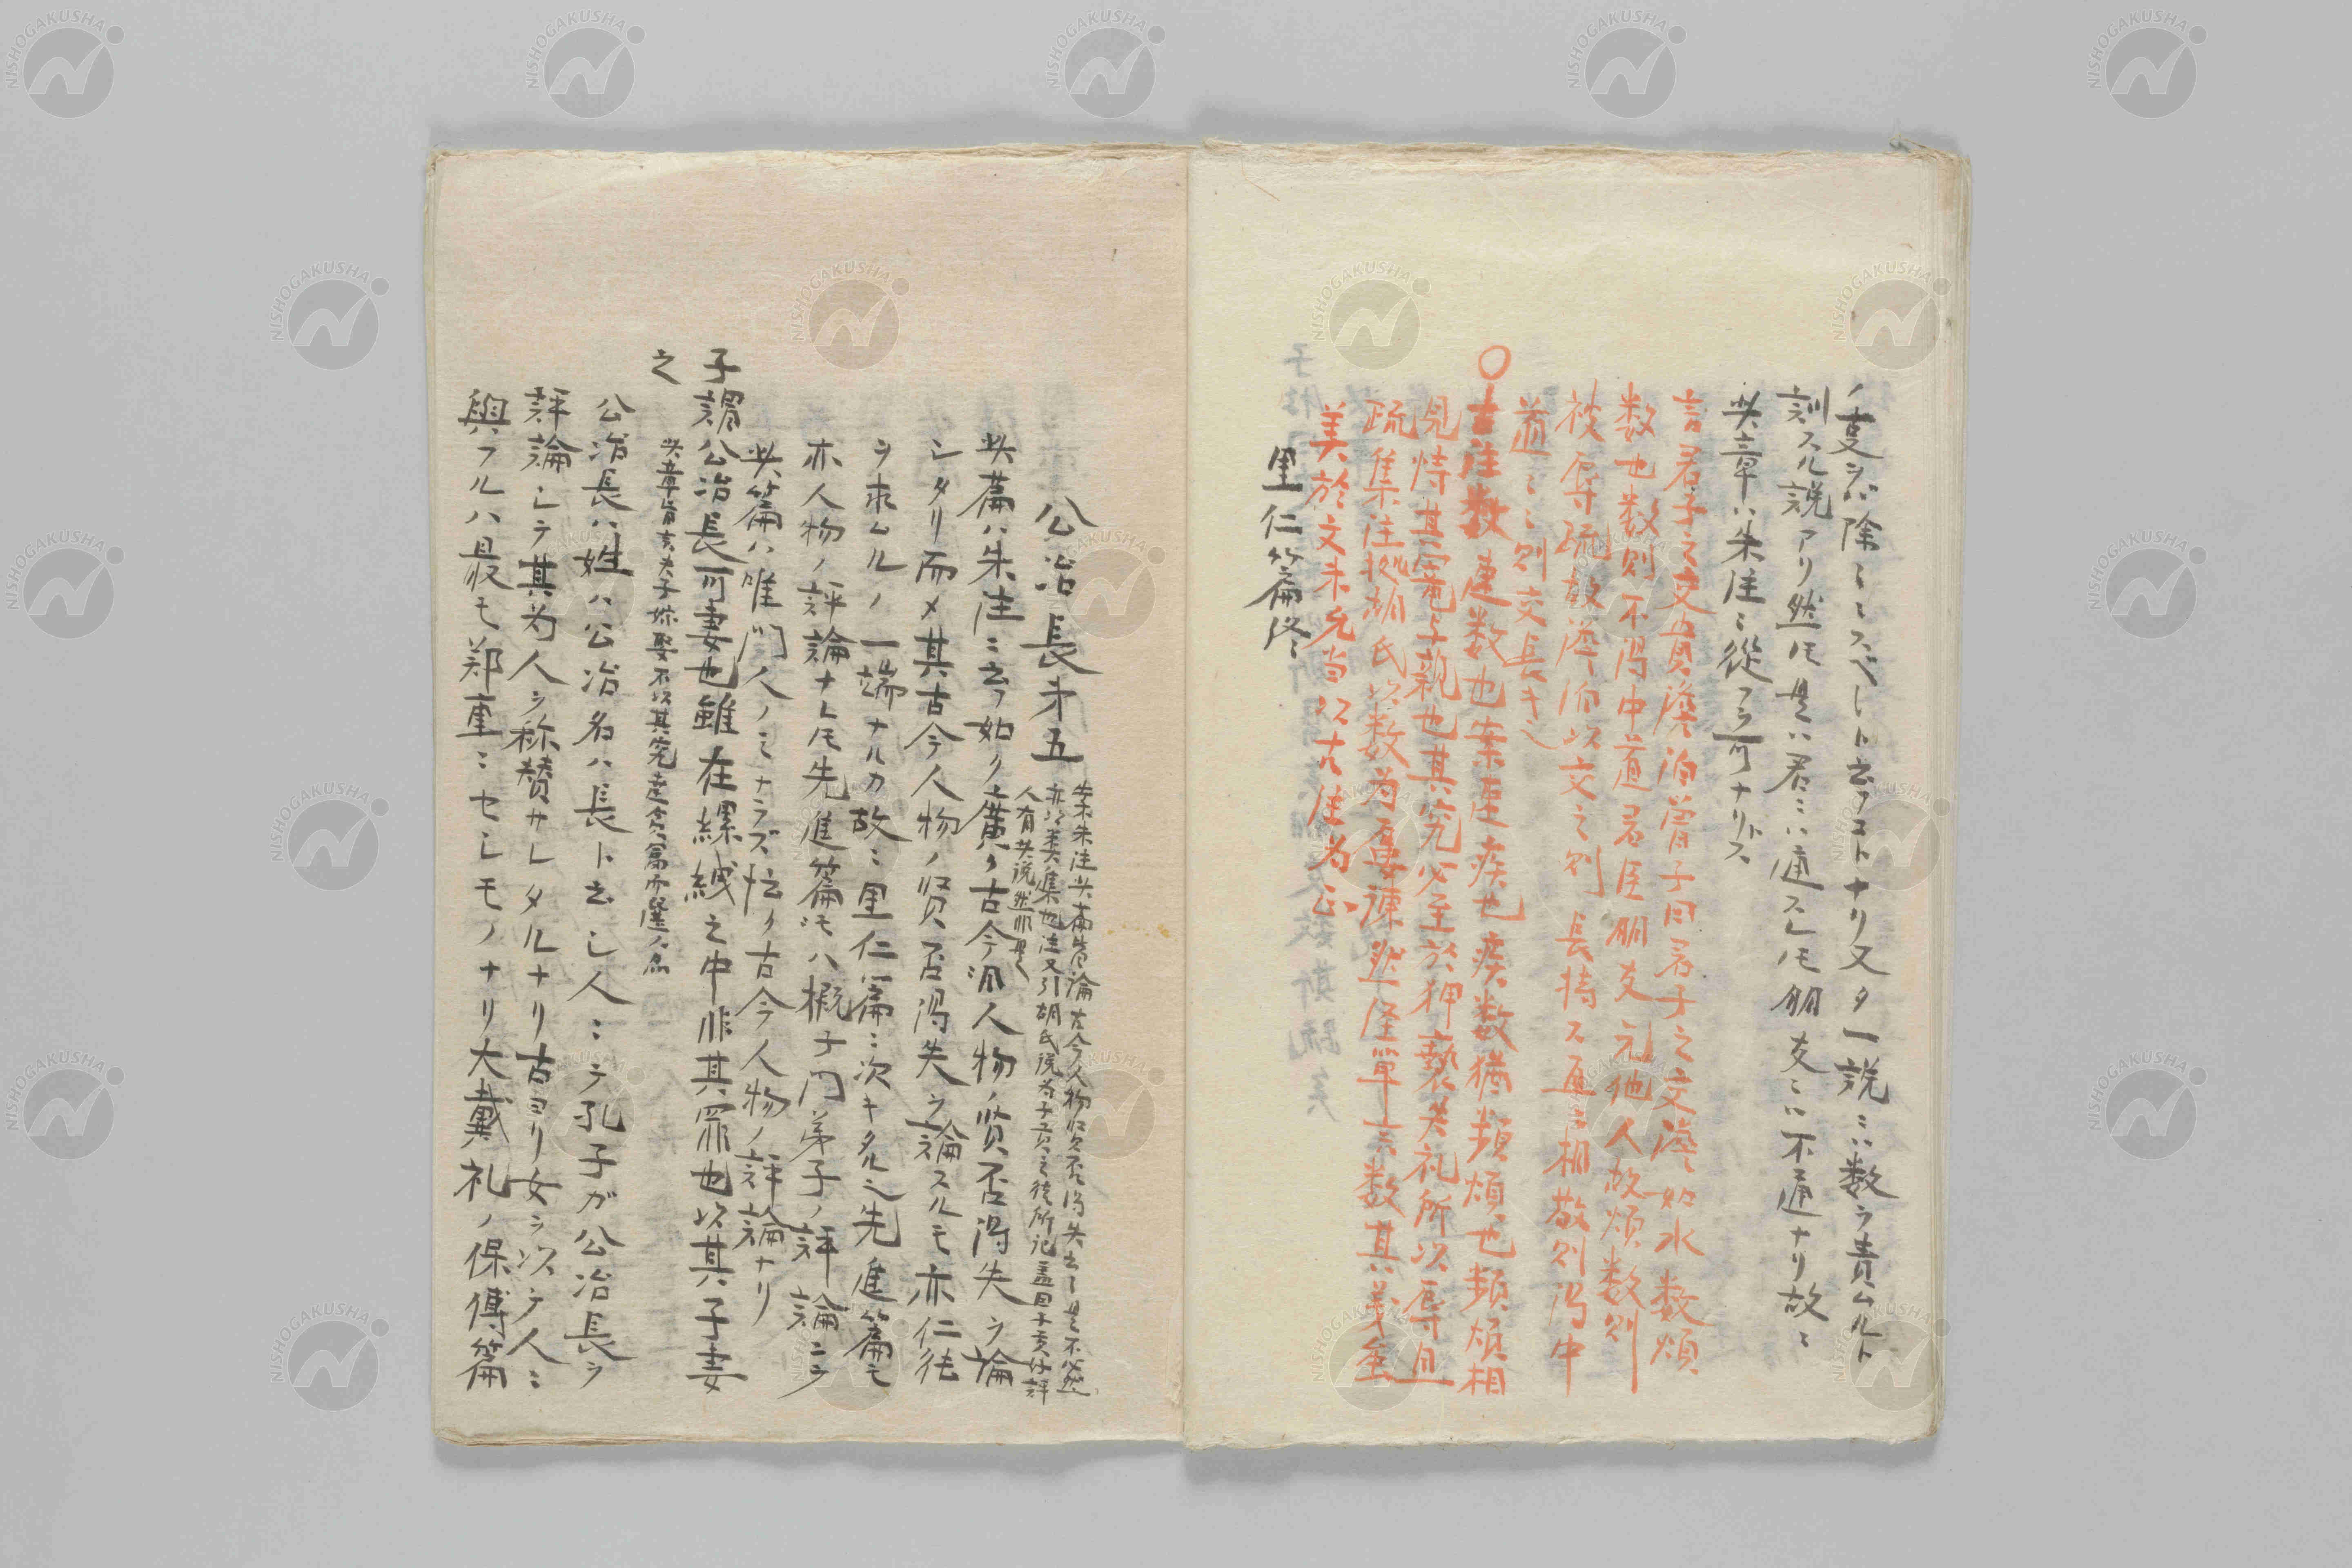 ノ支ヲバ除ミミスベシト云フコトナリ又タ一説ニハ数ヲ責ムルト
訓スル説アリ然ㇳモ是ハ君ニハ通スレㇳモ朋友ニハ不通ナリ故ニ
此章ハ朱注ニ從フヲ可ナリトス
言君子之交貴淡泊曽子曰君子之交淡如水数煩
数也数則不得中道君臣朋友元他人故煩数則
被辱疏故淡泊以交之則長持ス互ニ相敬則得中
道ミ則交長キ之
〇古注数速数也案速疾也疾数猶頻煩也頻煩相
見恃其寵与親也其究必至於狎褻失礼所以辱且
疏集注拠胡氏以数為屢諫然経單言数其義無
美於文未允当以古注為正
里仁篇終
公冶長才五
案朱注此篇皆論古今人物賢否得失云々是不必然
亦以類集也注又引胡氏説為子貢之徒所記盖因子貢好評
人有此説然非是
此篇ハ朱注ニ云フ如ク廣ク古今ノ人物ノ賢否得失ヲ論
シタリ而メ其古今人物ノ賢否得失ヲ論スルモ亦仁徳
ヲ求ムルノ一端ナルカ故ニ里仁篇ニ次キタル也先進篇モ
亦人物ノ評論ナレㇳモ先進篇ハ概子門弟子ノ評論ニシテ
此篇ハ唯門人ノミナラズ広ク古今人物ノ評論ナリ
子謂公冶長可妻也雖在縲絏之中非其罪也以其子妻
之
公冶長ハ姓ハ公冶名ハ長ト云シ人ニテ孔子ガ公冶長ヲ
評論シテ其為人ヲ称賛サレタルナリ古ヨリ女ヲ以テ人ニ
與フルハ最モ郑重ニセシモノナリ大戴礼ノ保傅篇